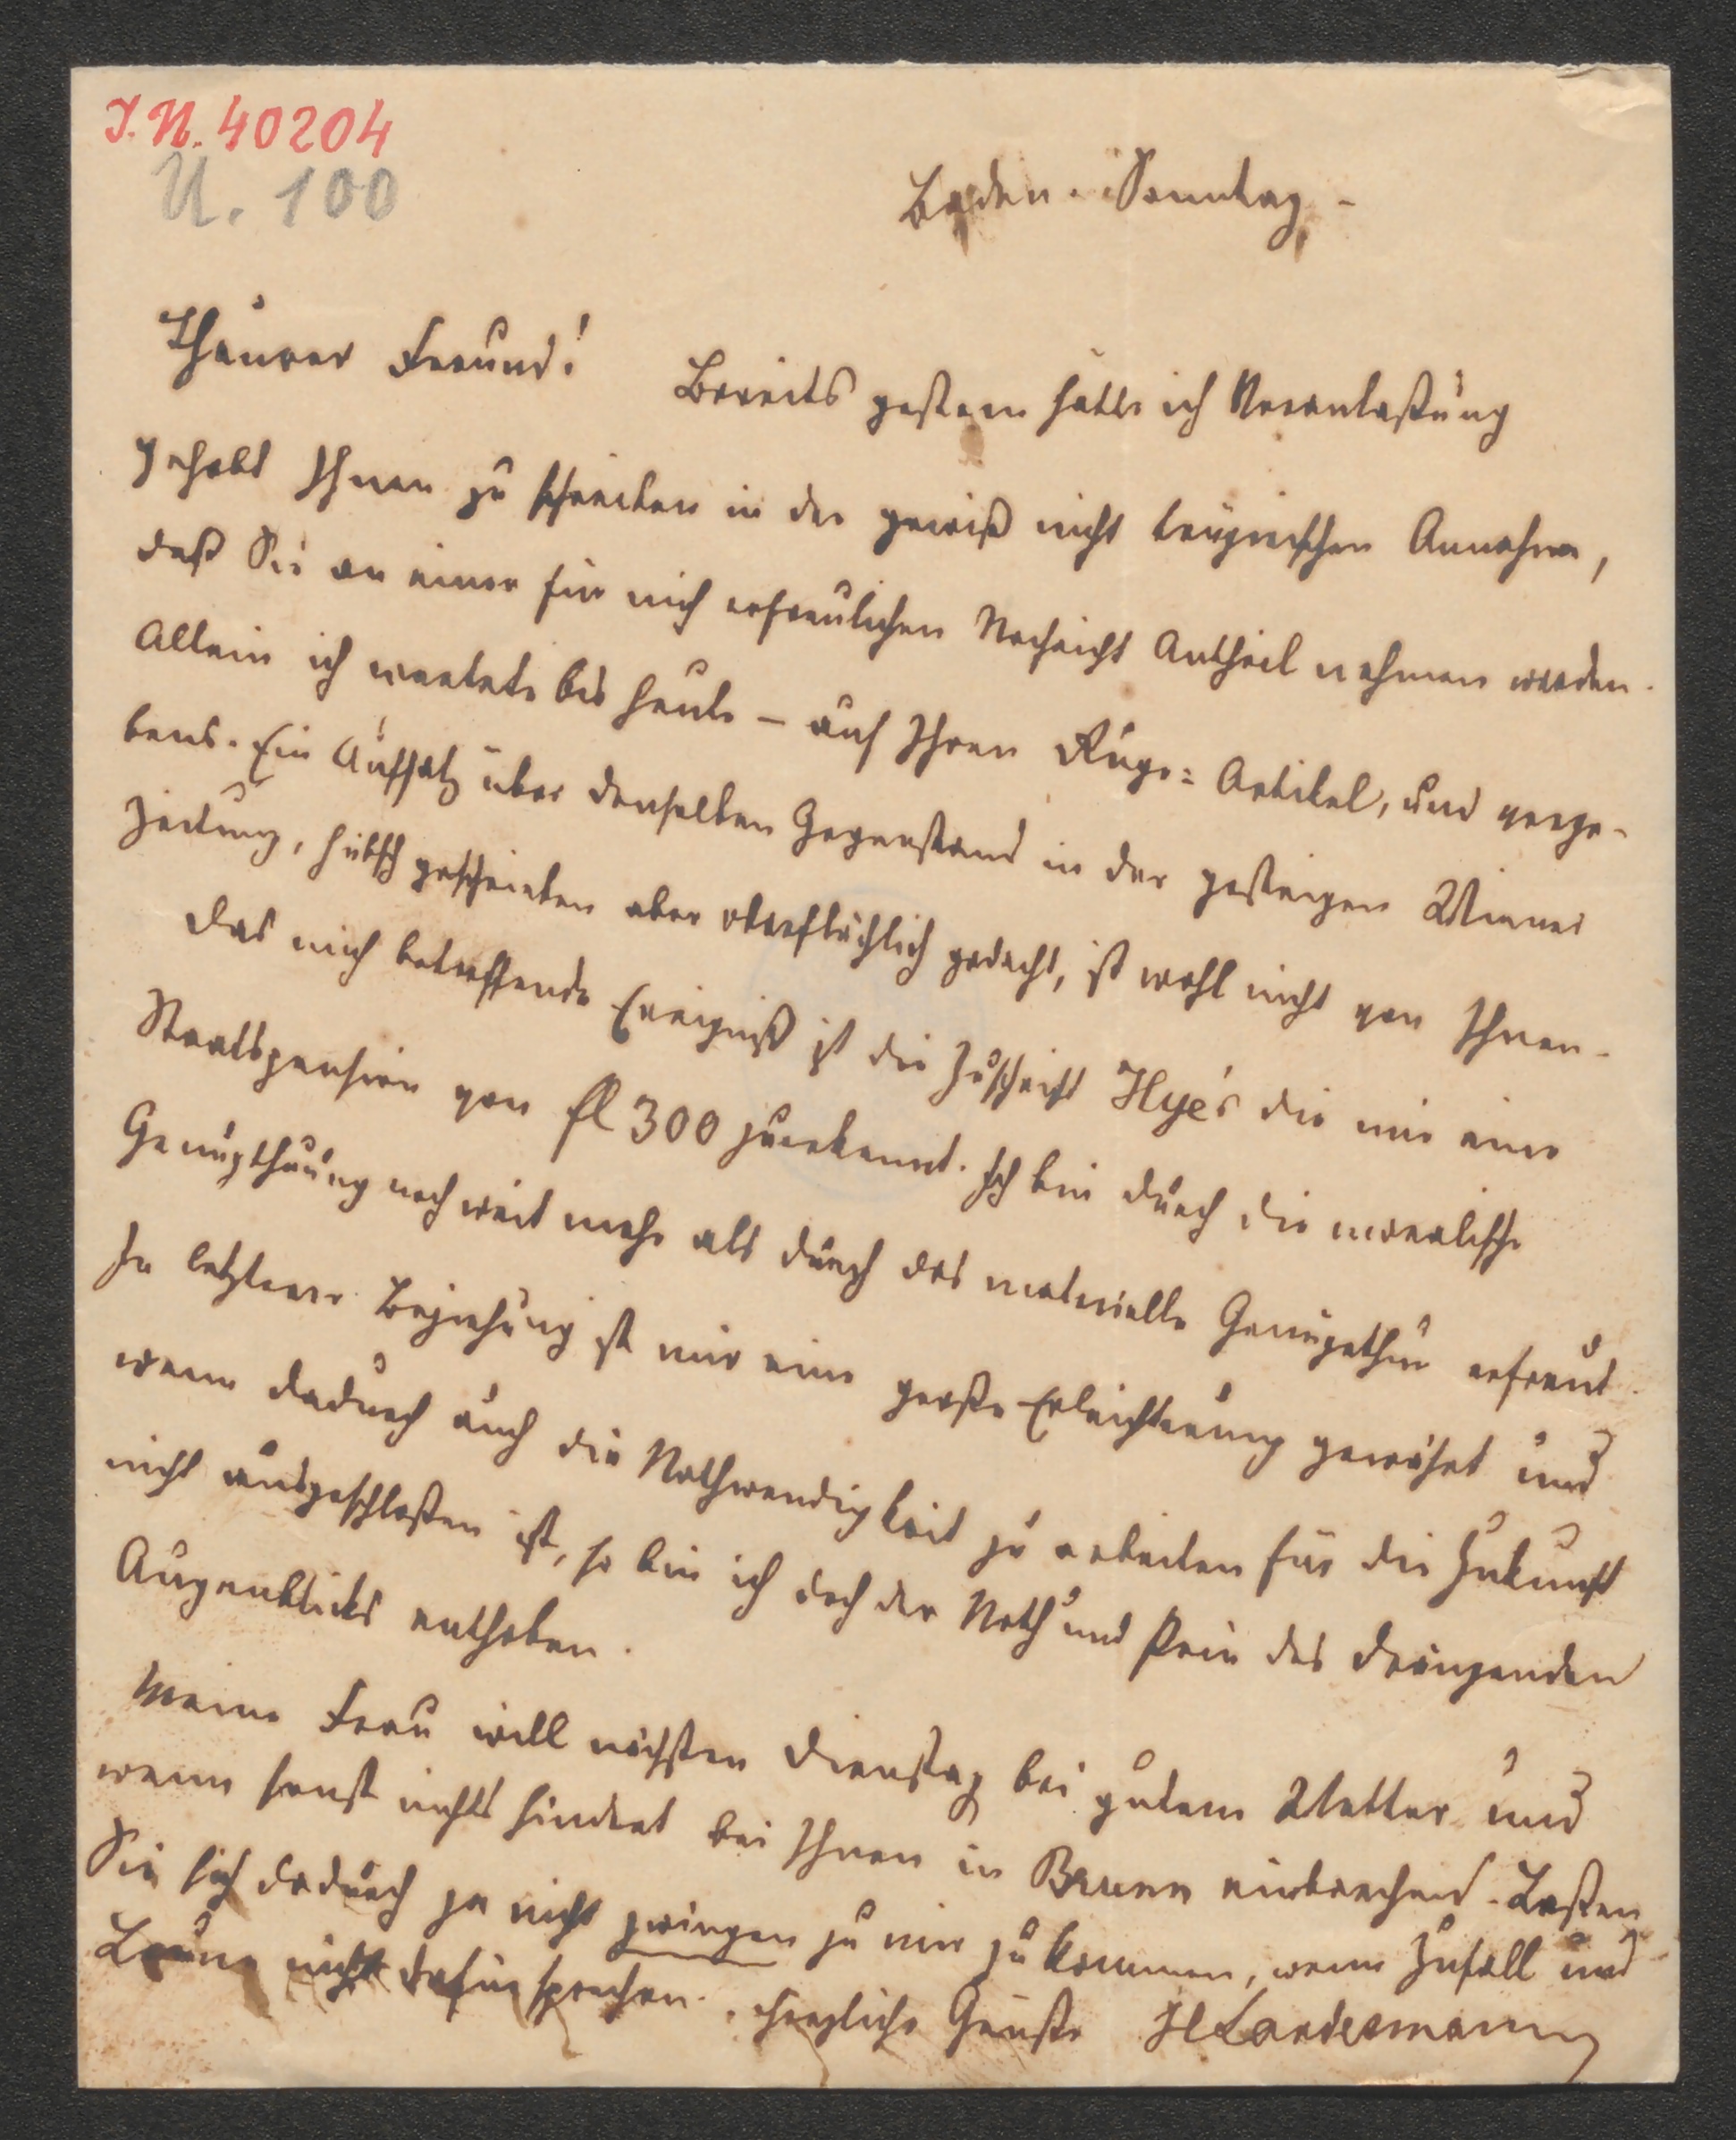 I.N. 40204
U. 100
Baden. Sonntag. -
Theurer Freund!
Bereits gestern hätte ich Veranlaßung
gehabt Ihnen zu schreiben in der gewiß nicht trügerischen Annahme,
daß Sie an einer für mich erfreulichen Nachricht Antheil nehmen werden.
Allein ich wartete bis heute – auf Ihren Ruge-Artikel, und verge-
bens. Ein Aufsatz über denselben Gegenstand in der gestrigen Wiener
Zeitung, hübsch geschrieben aber oberflächlich gedacht, ist wohl nicht von Ihnen.
Das mich betreffende Ereigniß ist die Zuschrift Hye's die mir eine
Staatspension von fl 300 zuerkennt. Ich bin durch die moralische
Genugthuung noch weit mehr als durch das materielle Genugethun erfreut.
In letzterer Beziehung ist mir eine große Erleichterung gewährt und
wenn dadurch auch die Nothwendigkeit zu arbeiten für die Zukunft
nicht ausgeschloßen ist, so bin ich doch der Noth und Pein des drängenden
Augenblicks enthoben.
Meine Frau will nächsten Dienstag bei gutem Wetter und
wenn sonst nichts hindert bei Ihnen in Brunn einbrechen. Laßen
Sie sich dadurch ja nicht zwingen zu mir zu kommen, wenn Zufall und
Laune nicht dafür sprechen. Herzliche Grüße HLandesmann